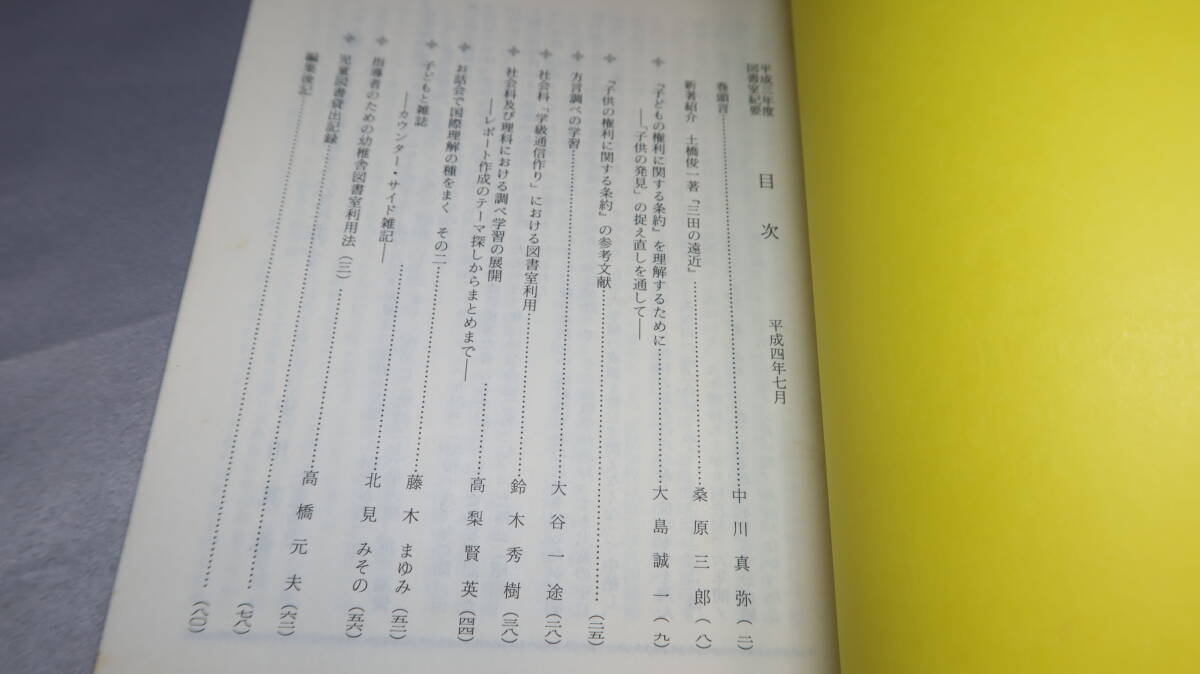 平成三年度
図書室紀要
目次
平成四年七月
巻頭言……中川真弥（二）
新著紹介　土橋俊一著『三田の遠近』……桑原三郎（八）
『子どもの権利に関する条約』を理解するために……大島誠一（九）
――「子供の発見」の捉え直しを通して――
『子供の権利に関する条約』の参考文献……（二五）
方言調べの学習……大谷一途（二八）
社会科「学級通信作り」における図書室利用……鈴木秀樹（三八）
社会科及び理科における調べ学習の展開
――レポート作成のテーマ探しからまとめまで――……高梨賢英（四四）
お話会で国際理解の種をまく　その二……藤木まゆみ（五二）
子どもと雑誌
――カウンター・サイド雑記――……北見みその（五六）
指導者のための幼稚舎図書室利用法（三）……高橋元夫（六二）
児童図書貸出記録……（七八）
編集後記……（八〇）